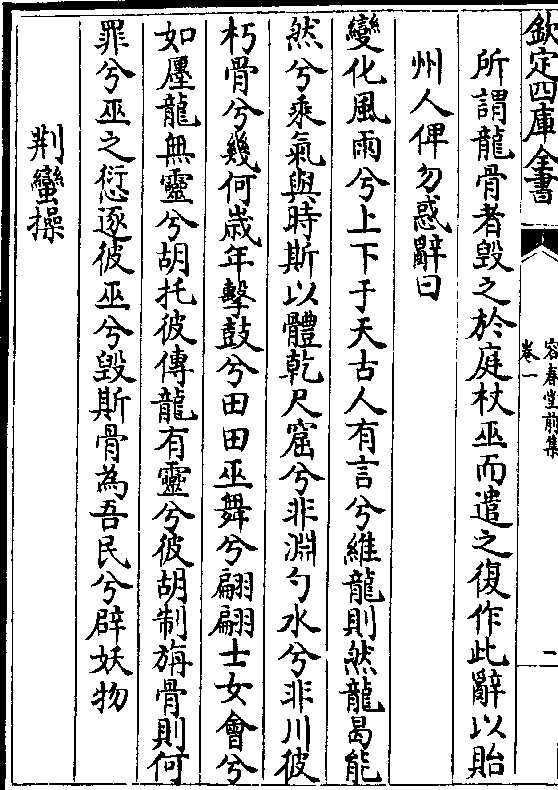 欽定四庫全書
容春堂前集
卷一
一
所謂龍骨者毀之於庭杖巫而遣之復作此辭以貽
州人俾勿惑辭曰
變化風雨兮上下于天古人有言兮維龍則然龍曷能
然兮乘氣與時斯以體乾尺窟兮非淵勺水兮非川彼
朽骨兮幾何歲年擊鼓兮田田巫舞兮翩翩士女會兮
如㕓龍無靈兮胡托彼傳龍有靈兮彼胡制旃骨則何
罪兮巫之愆逐彼巫兮毀斯骨為吾民兮辟妖物
荆蠻操